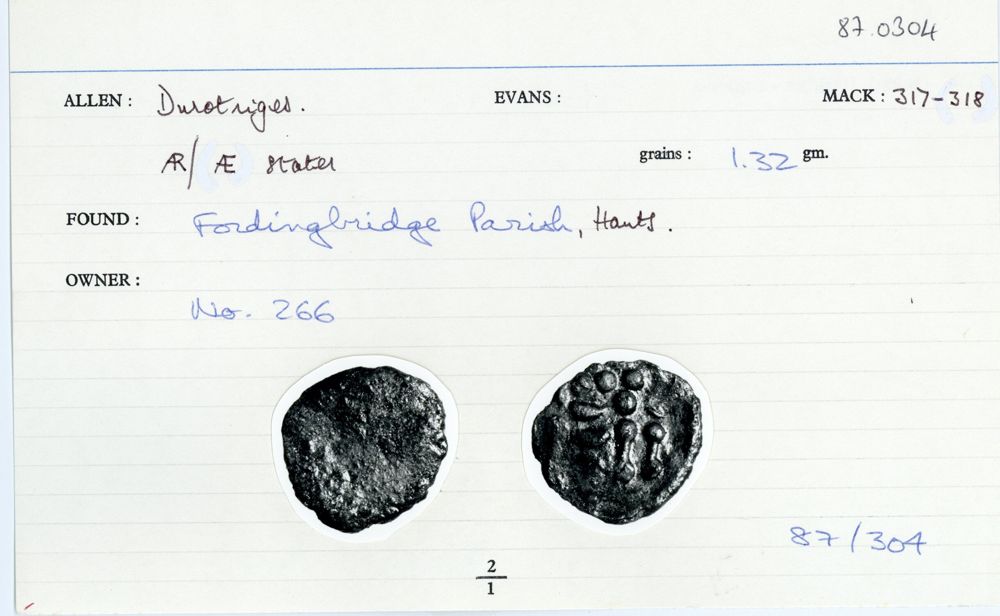 87.0304
ALLEN : Durotriges. EVANS : MACK : 317-318
Æ/Æ stater grains : 1.32 gm.
FOUND : Fordingbridge Parish, Hants.
OWNER :
No. 266
87/304
2
1